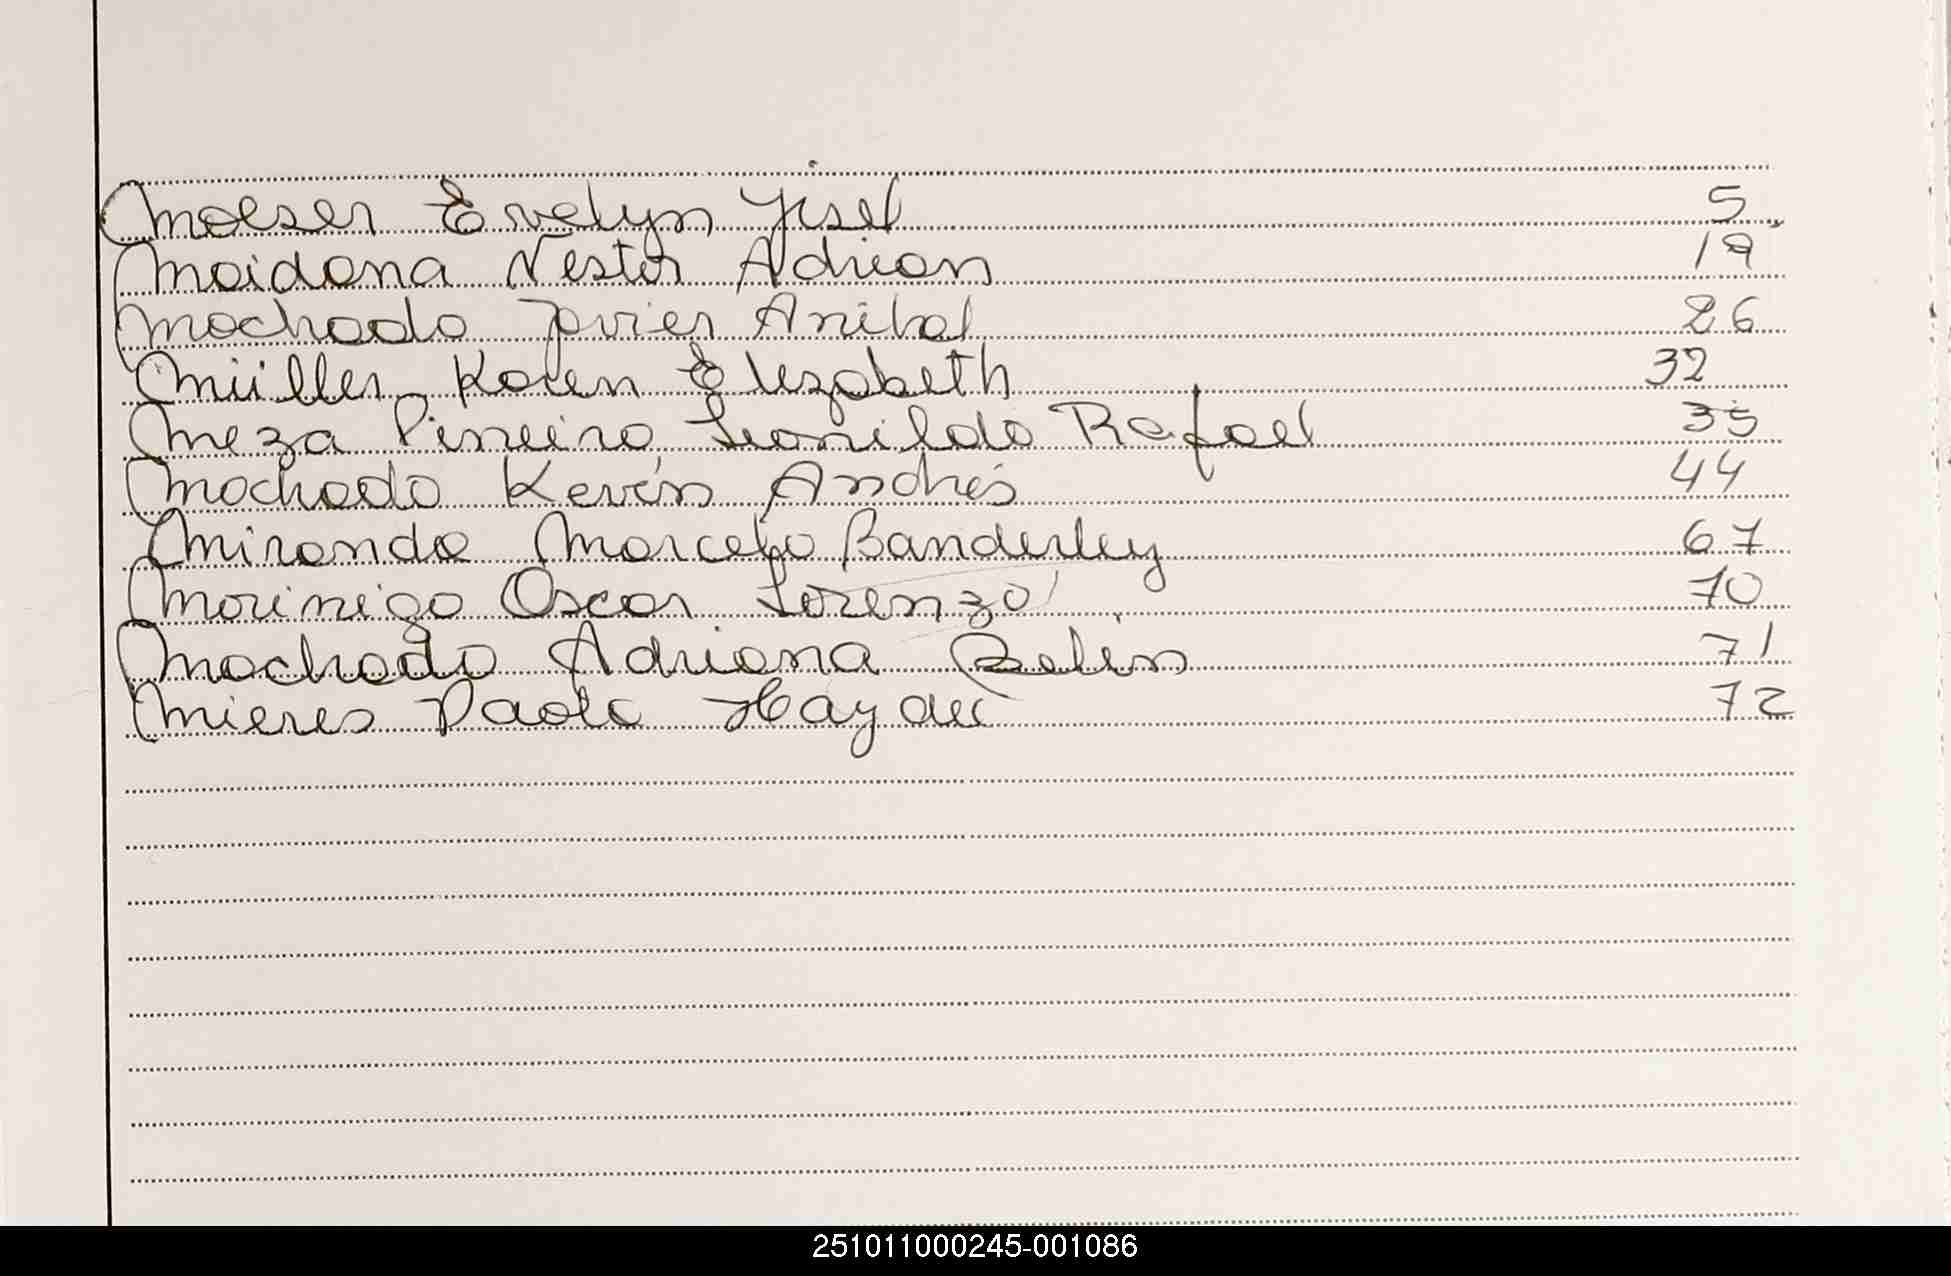 Moeser Evelyn Yisel 5
Maidana Nestor Adrian 19
Machado Javier Anibal 26
Müller Karen Elizabeth 32
Meza Piñeiro, Leonildo Rafael 35
Machado Kevin Andrés 44
Miranda Marcelo Banderley 67
Morinigo Oscar Lorenzo 70
Machado Adriana Belén 71
Mieres Paola Haydee 72
251011000245-001086